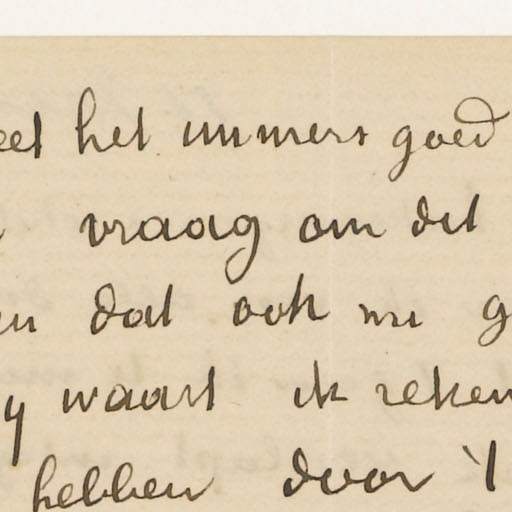 het immers goed
vraag om dit
dat ook nu g
y waart ik reken
hebben door 't